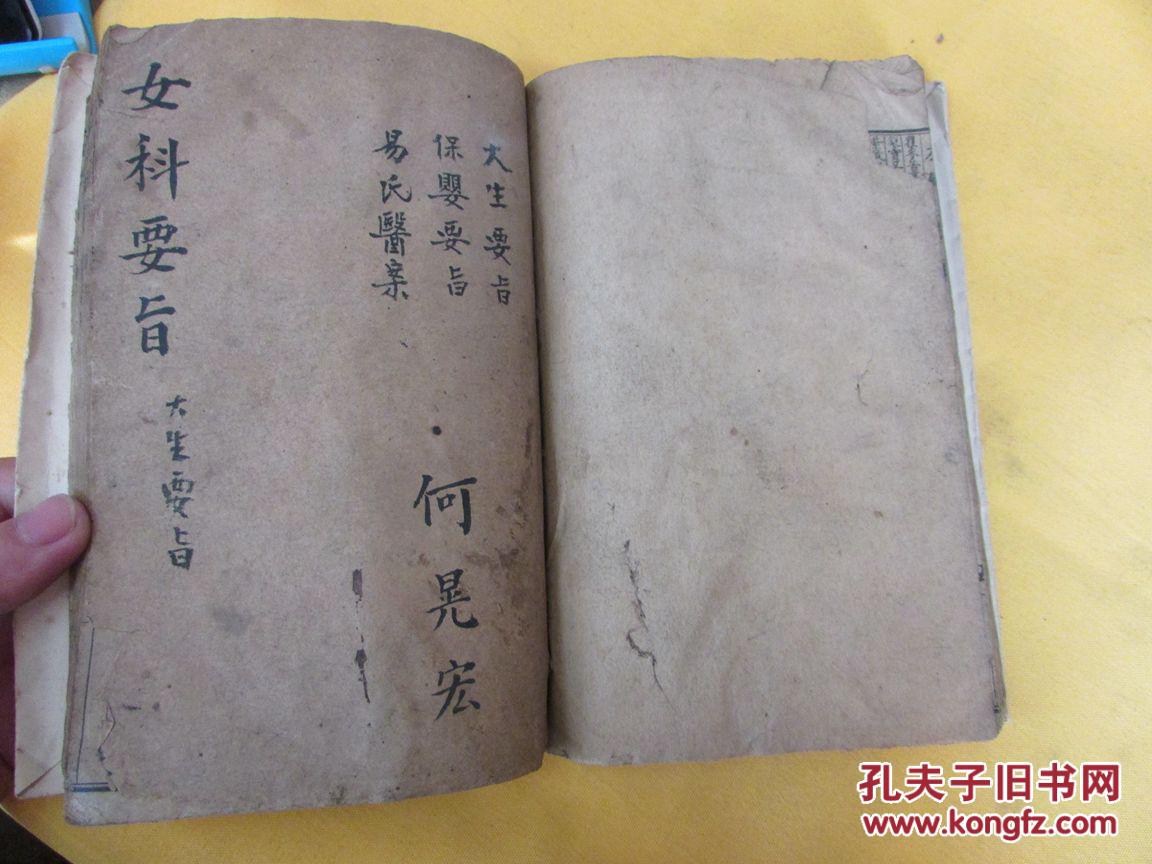 大生要旨
保嬰要旨
易氏醫案
何晃宏
女科要旨
大生要旨
孔夫子旧书网
www.kongfz.com